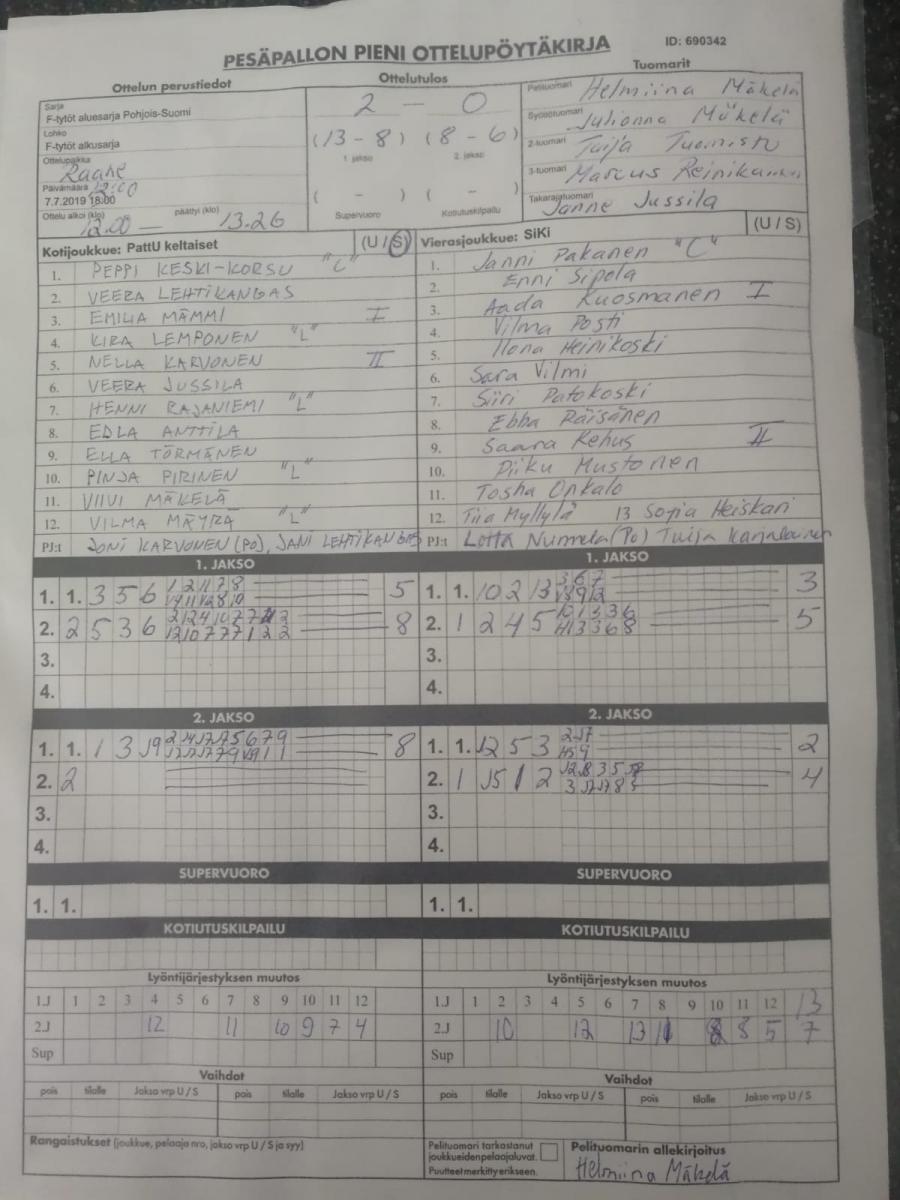 PESÄPALLON PIENI OTTELUPÖYTÄKIRJA
ID: 690342
Ottelun perustiedot
Ottelutulos
Tuomarit
Sarja
F-tytöt aluesarja Pohjois-Suomi
Lohko
F-tytöt alkusarja
Ottelupaikka
Raahe
Päivämäärä 12:00
7.7.2019 18:00
Ottelu alkoi (klo) päättyi (klo)
12.00 — 13.26
2 — 0
(13 - 8) (8 - 6)
1. jakso 2. jakso
( - ) ( - )
Supervuoro Kotiutuskilpailu
Pelituomari Helmiina Mäkelä
Syöttötuomari Julianna Mäkelä
2-tuomari Tuija Tuomisto
3-tuomari Marcus Reinikainen
Takarajatuomari Janne Jussila
Kotijoukkue: PattU keltaiset (U / S)
1. PEPPI KESKI-KORSU "C"
2. VEERA LEHTIKANGAS
3. EMILIA MÄMMI I
4. KIRA LEMPONEN "L"
5. NELLA KARVONEN II
6. VEERA JUSSILA
7. HENNI RAJANIEMI "L"
8. EDLA ANTTILA
9. ELLA TÖRMÄNEN
10. PINJA PIRINEN "L"
11. VIIVI MÄKELÄ
12. VILMA MÄYRÄ "L"
PJ:t JONI KARVONEN (PO), JANI LEHTIKANGAS
Vierasjoukkue: SiKi (U / S)
1. Janni Pakanen "C"
2. Enni Sipola
3. Aada Kuosmanen I
4. Vilma Posti
5. Ilona Heinikoski
6. Sara Vilmi
7. Siiri Patokoski
8. Ebba Räisänen
9. Saara Rehus II
10. Piiku Mustonen
11. Tosha Onkalo
12. Tiia Myllylä 13 Sofia Heiskari
PJ:t Lotta Nummela (Po) Tuija Karjalainen
1. JAKSO
1. 1. 3 5 6 5
2. 2 5 3 6 8
3.
4.
1. JAKSO
1. 1. 10 2 13 3
2. 1 2 4 5 5
3.
4.
2. JAKSO
1. 1. 1 3 8
2. 2
3.
4.
2. JAKSO
1. 1. 12 5 3 2
2. 1 4
3.
4.
SUPERVUORO
1. 1.
SUPERVUORO
1. 1.
KOTIUTUSKILPAILU
KOTIUTUSKILPAILU
Lyöntijärjestyksen muutos
1.J 1 2 3 4 5 6 7 8 9 10 11 12
2.J 12 11 10 9 7 4
Sup
Lyöntijärjestyksen muutos
1.J 1 2 3 4 5 6 7 8 9 10 11 12 13
2.J 10 12 13 8 5 7
Sup
Vaihdot
pois tilalle Jakso vrp U / S pois tilalle Jakso vrp U / S
Vaihdot
pois tilalle Jakso vrp U / S pois tilalle Jakso vrp U / S
Rangaistukset (joukkue, pelaaja nro, jakso vrp U / S ja syy)
Pelituomari tarkastanut
joukkueiden pelaajaluvat.
Puutteet merkitty erikseen.
Pelituomarin allekirjoitus
Helmiina Mäkelä